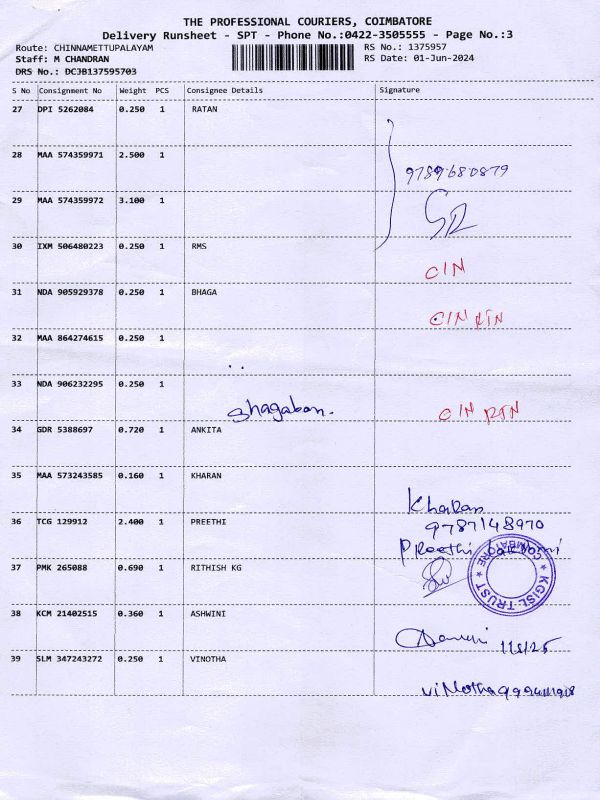 THE PROFESSIONAL COURIERS, COIMBATORE
Delivery Runsheet - SPT - Phone No.:0422-3505555 - Page No.:3
Route: CHINNAMETTUPALAYAM RS No.: 1375957
Staff: M CHANDRAN RS Date: 01-Jun-2024
DRS No.: DCJB137595703
S No Consignment No Weight PCS Consignee Details Signature
27 DPI 5262084 0.250 1 RATAN
28 MAA 574359971 2.500 1
9789680879
29 MAA 574359972 3.100 1
30 IXM 506480223 0.250 1 RMS
C/N
31 NDA 905929378 0.250 1 BHAGA
C/N RTN
32 MAA 864274615 0.250 1
33 NDA 906232295 0.250 1
C/N RTN
34 GDR 5388697 0.720 1 ANKITA
35 MAA 573243585 0.160 1 KHARAN
Kharan
36 TCG 129912 2.400 1 PREETHI
9787148970
Preethi
37 PMK 265088 0.690 1 RITHISH KG
KGISL TRUST ★ COIMBATORE ★
38 KCM 21402515 0.360 1 ASHWINI
39 SLM 347243272 0.250 1 VINOTHA
Vinotha